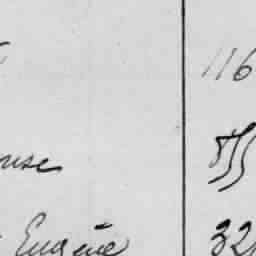 116
ouse 855
Eugène 32